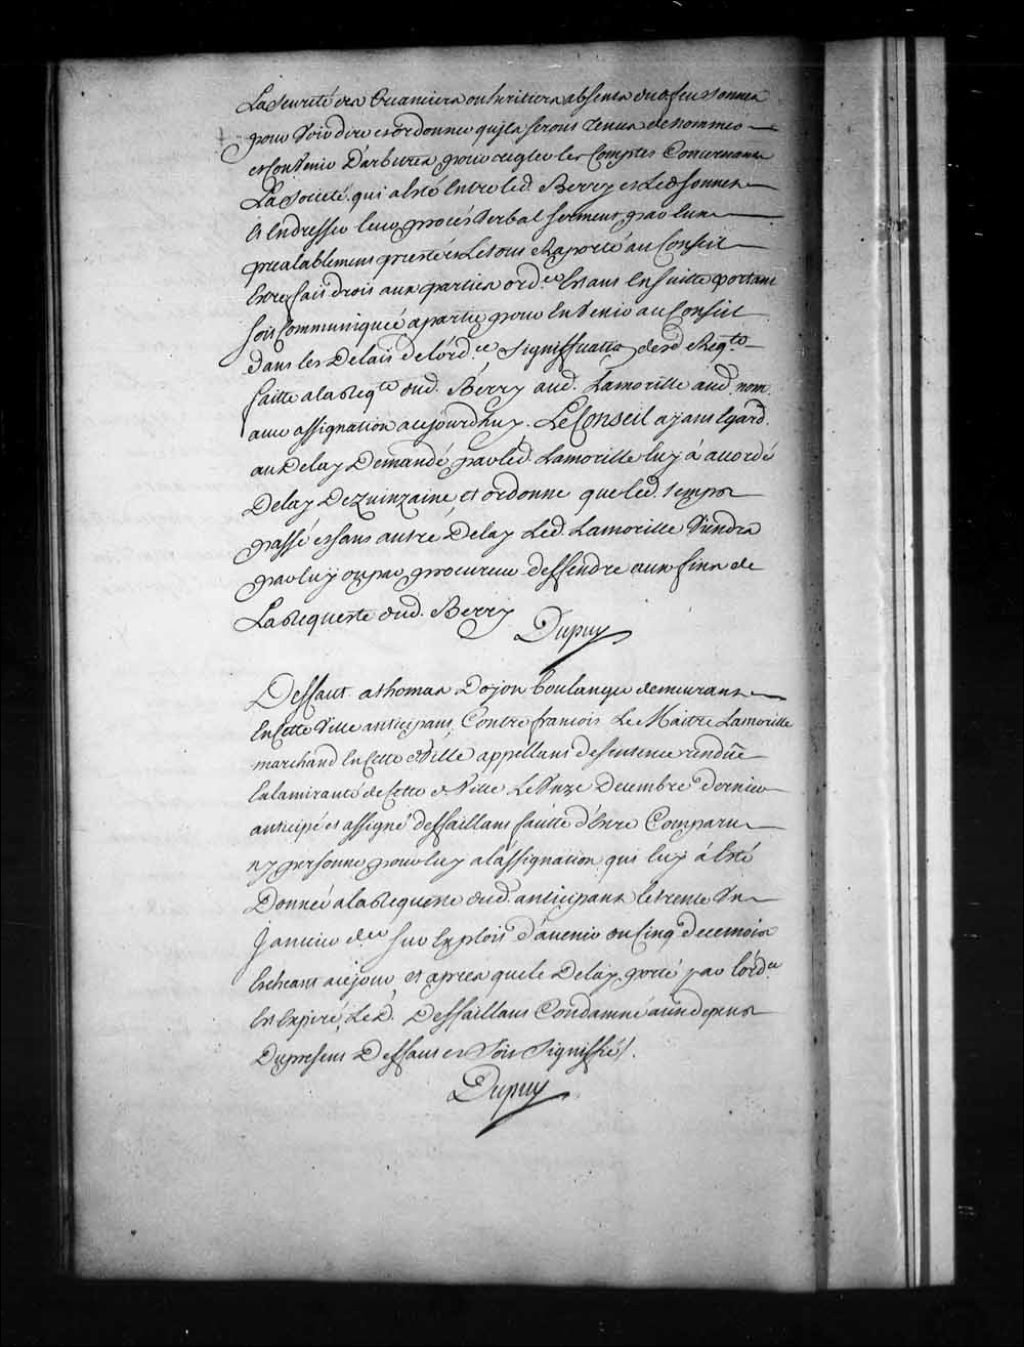 La seureté des Creanciers ou heritiers absens dud. feu sonnes
pour Voir dire et ordonner qu'ils seront tenus de nommer
et Convenir D'arbitres pour regler les Comptes Concernans
La Societé qui a Esté Entre led. Berry et Led. sonnes
Et En dresser leur procés Verbal serment par Eux
prealablement presté Et Le tout Raporté au Conseil
Estre fait droit aux parties ord.ce Estant Ensuite portant
soit Communiquée a partie pour En Venir au Conseil
dans les Delais de l'ord.ce signiffication desd. Req.te
faitte a la Req.te dud. Berry aud. Lamorille aud. nom
avec assignation a cejourd'huy. Le Conseil ayant Egard
au Delay Demandé par led. Lamorille luy à accordé
Delay De quinzaine et ordonne que led. temps
passé et sans autre Delay Led. Lamorille Viendra
par luy ou par procureur deffendre aux fins de
La Requeste dud. Berry
Dupuy
Deffaut a thomas Doyon boulanger demeurant
En Cette Ville anticipant, Contre francois Le Maitre Lamorille
marchand En Cette Ville appellant de sentence rendüe
En l'amirauté de Cette Ville Le Onze Decembre dernier
anticipé et assigné deffaillant faute d'Estre Comparu
ny personne pour luy a l'assignation qui luy à Esté
Donnée a la Requeste dud. anticipant le trente Un
Janvier d.er sur Exploit d'avenir du Cinq de ce mois
Echeant a ce jour, et aprés que le Delay porté par l'ord.ce
Est Expiré, Led. Deffaillant Condamné aux depens
Du present Deffaut et soit signiffié.
Dupuy